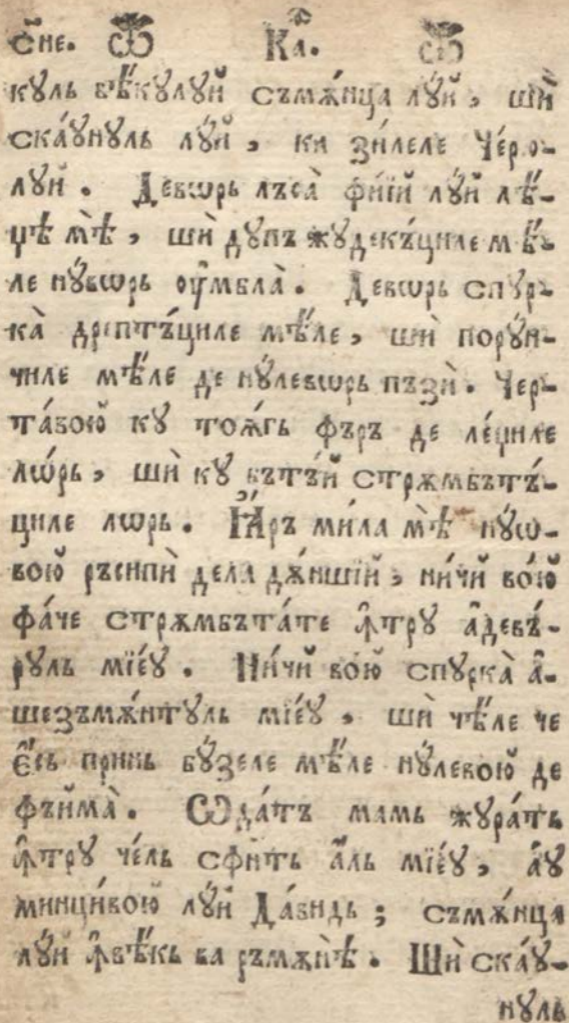 сн҃е. Ѿ Ка. Ѿ
куль вѣ́кулуй съмѫ́нца лу́й, шѝ
ска́унуль лу́й, ки зи́леле че́рю-
луй. Де́вѡрь лъса̀ фі́їй лу́й лѣ́-
џѣ мѣ̀, шѝ дупъ жудекъ́циле мѣ́-
ле ну́вѡрь оу҆мбла̀. Де́вѡрь спур-
ка̀ дрептъ́циле мѣ́ле, шѝ пору́н-
чиле мѣ́ле де ну́левѡрь пъзѝ. Чер-
та́вою̆ ку тоѧ́гь фъръ де ле́џиле
лѡ́рь, шѝ ку бътъ́й стрѫмбътъ́-
циле лѡрь. І҆а́ръ ми́ла мѣ̀ ну́ѡ-
вою̆ ръсипѝ дела дѫ́ншїй, ни́чй во́ю̆
фа́че стрѫмбъта́те ꙟ҆тру а҆девъ́-
руль мїе́у. Ни́чй вою̆ спурка̀ а҆-
шезъмѫ́нтуль мїе́у, шѝ чѣ́ле че
є҆́сь принь бу́зеле мѣ́ле ну́левою̆ де
фъйма̀. Ѡ҆да́тъ мамь жура́ть
ꙟ҆тру че́ль сфнть а҆́ль мїе́у, а҆́у
минци́вою̆ лу́й Да́видь; съмѫ́нца
лу́й ꙟ҆вѣ́кь ва ръмѫнѣ̀. Шѝ ска́у-
нуль